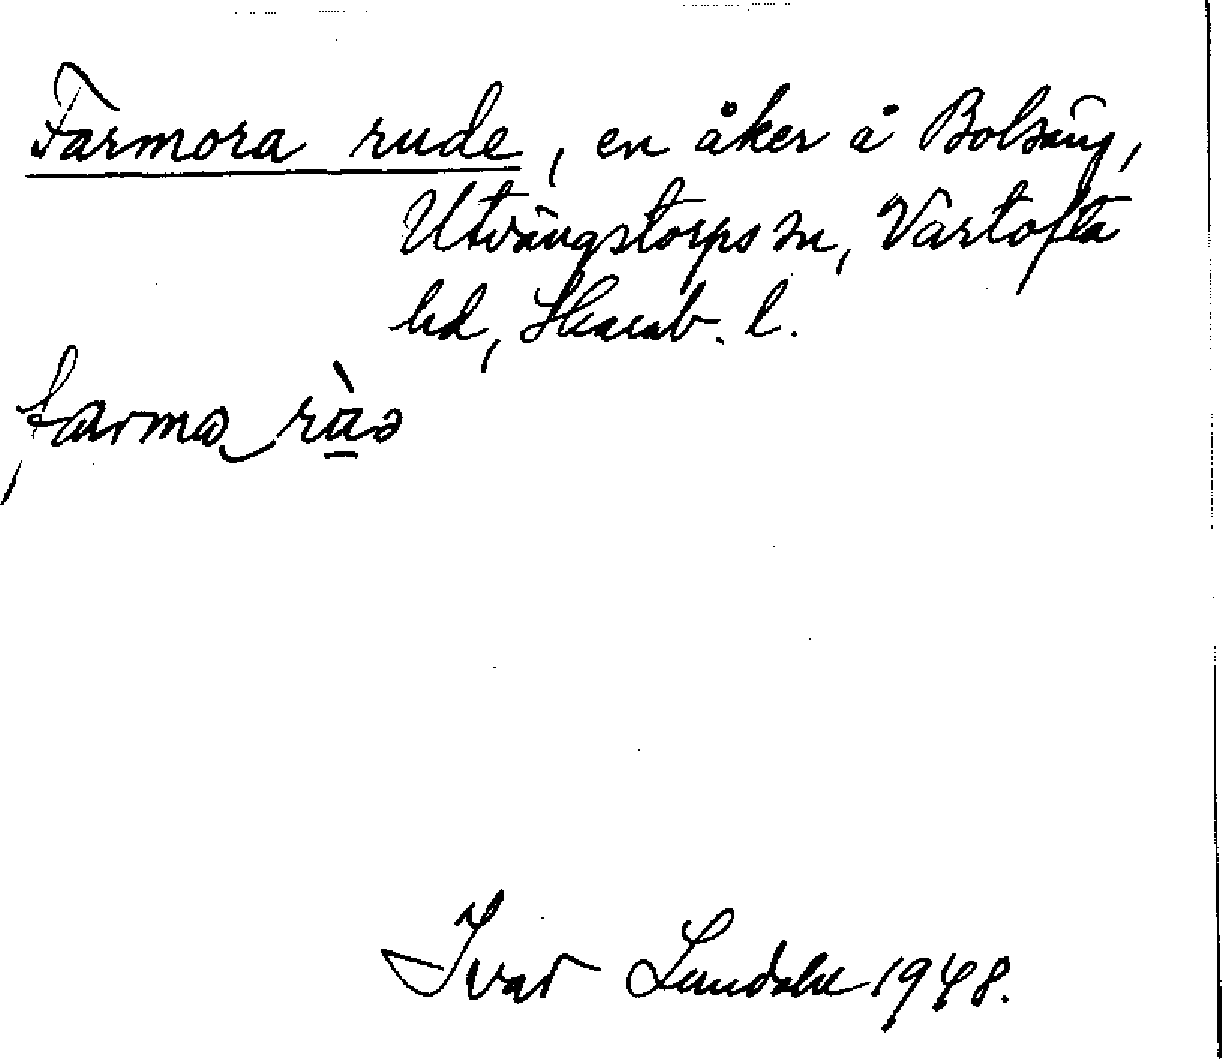 Farmora rude, en åker å Bolsäng,
Utvängstorps sn, Vartofta
hd, Skarab. l.
farmɷ rùə
Ivar Lundahl 1948.